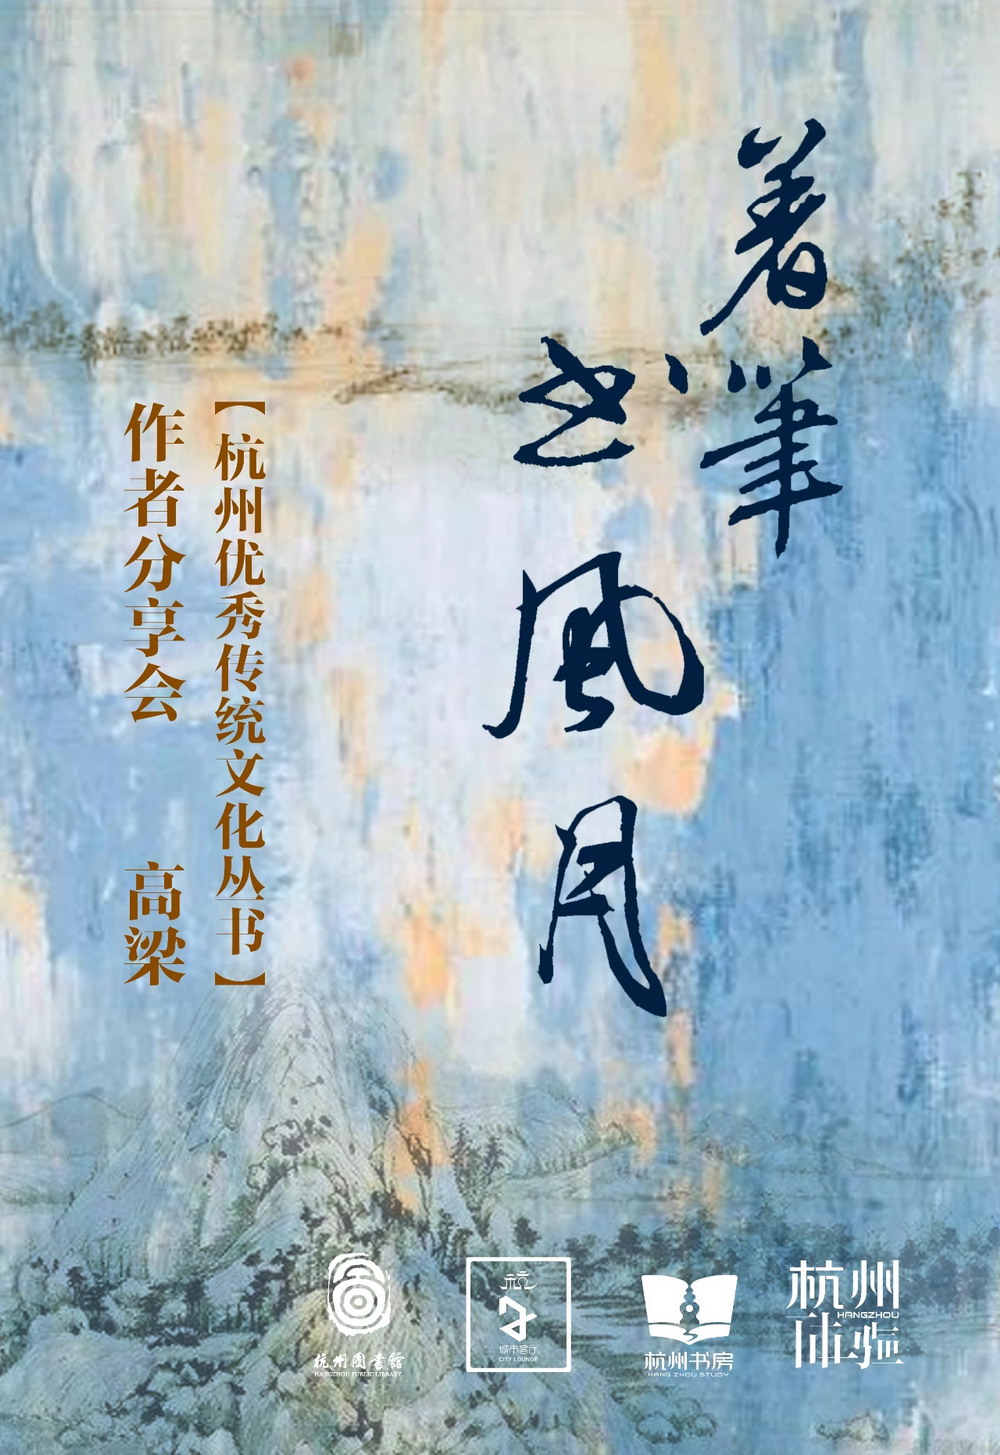 著筆
书風月
【杭州优秀传统文化丛书】
作者分享会 高梁
杭州图書館
HANGZHOU PUBLIC LIBRARY
杭
城市客厅
CITY LOUNGE
杭州书房
HANG ZHOU STUDY
杭州
HANGZHOU
体验